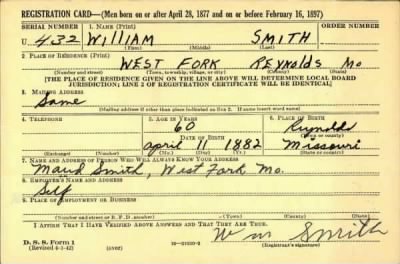 REGISTRATION CARD—(Men born on or after April 28, 1877 and on or before February 16, 1897)
SERIAL NUMBER 1. NAME (Print) ORDER NUMBER
U 432 WILLIAM SMITH
(First) (Middle) (Last)
2. PLACE OF RESIDENCE (Print)
WEST FORK REYNOLDS MO
(Number and street) (Town, township, village, or city) (County) (State)
[THE PLACE OF RESIDENCE GIVEN ON THE LINE ABOVE WILL DETERMINE LOCAL BOARD
JURISDICTION; LINE 2 OF REGISTRATION CERTIFICATE WILL BE IDENTICAL]
3. MAILING ADDRESS
Same
[Mailing address if other than place indicated on line 2. If same insert word same]
4. TELEPHONE 5. AGE IN YEARS 6. PLACE OF BIRTH
60 Reynolds
DATE OF BIRTH (Town or county)
april 11 1882 Missouri
(Exchange) (Number) (Mo.) (Day) (Yr.) (State or country)
7. NAME AND ADDRESS OF PERSON WHO WILL ALWAYS KNOW YOUR ADDRESS
Maud Smith, West Fork Mo.
8. EMPLOYER'S NAME AND ADDRESS
Self
9. PLACE OF EMPLOYMENT OR BUSINESS
(Number and street or R. F. D. number) (Town) (County) (State)
I AFFIRM THAT I HAVE VERIFIED ABOVE ANSWERS AND THAT THEY ARE TRUE.
D. S. S. Form 1 Wm Smith
(Revised 4-1-42) (over) (Registrant's signature)